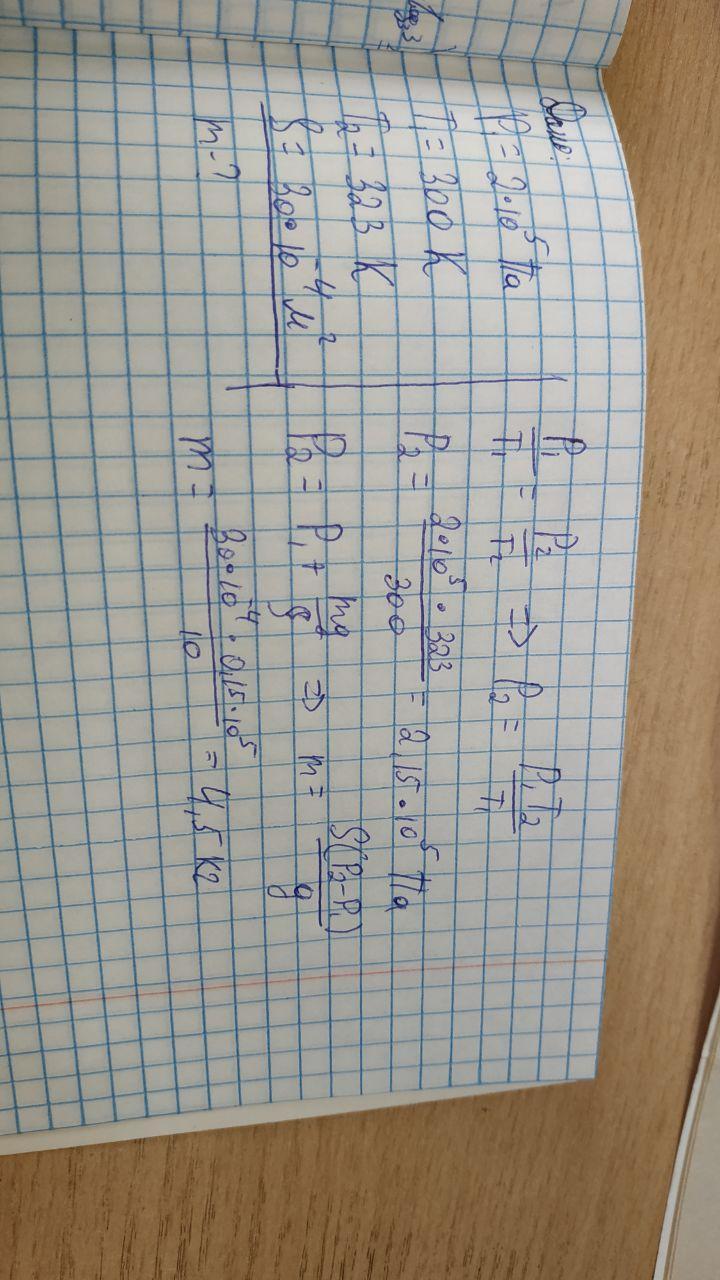 log 3
Дано:
P₁ = 2·10⁵ Па
T₁ = 300 К
T₂ = 323 К
S = 30·10⁻⁴ м²
m - ?
P₁/T₁ = P₂/T₂ ⇒ P₂ = P₁T₂/T₁
P₂ = 2·10⁵·323/300 = 2,15·10⁵ Па
P₂ = P₁ + mg/S ⇒ m = S(P₂-P₁)/g
m = 30·10⁻⁴·0,15·10⁵/10 = 4,5 кг